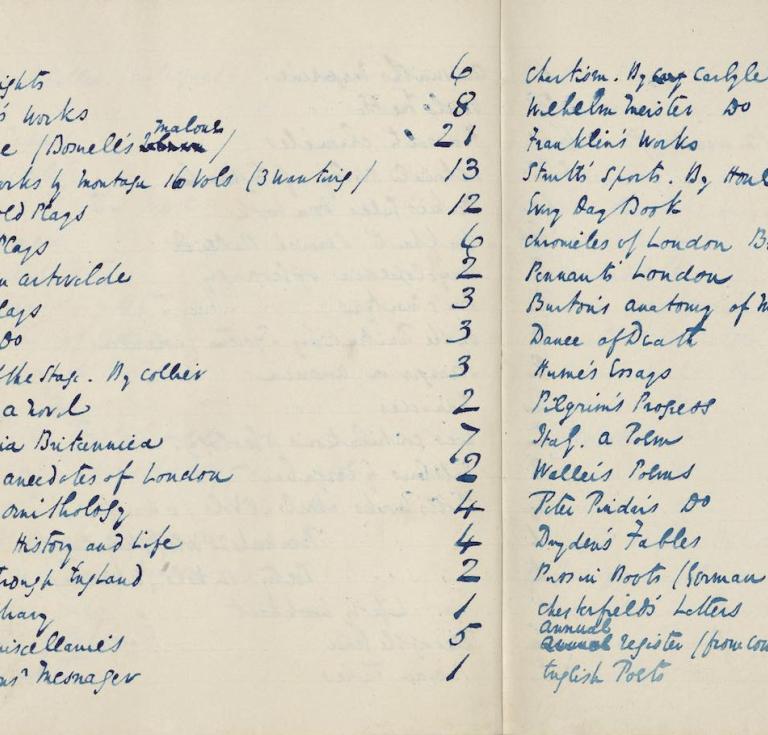 ights 6
's Works 8
e (Boswell's Malone) 21
orks by Montagu 16 Vols (3 wanting) 13
old Plays 12
Plays 6
n artevelde 2
lays 3
Do 3
f the Stage. By Collier 3
a Novel 2
ia Britannica 7
anecdotes of London 2
ornithology 4
History and Life 4
rough England 2
nary 1
iscellanies 5
ns' Messenger 1
Chartism. By Carlyle
Wilhelm Meister Do
Franklin's Works
Strutt's Sports. By Hone
Every Day Book
Chronicles of London B
Pennant's London
Burton's anatomy of M
Dance of Death
Hume's Essays
Pilgrim's Progess
Italy. a Poem
Waller's Poems
Peter Pindar's Do
Dryden's Fables
Puss in Boots (German
Chesterfield's Letters
annual
Register (from com
English Poets